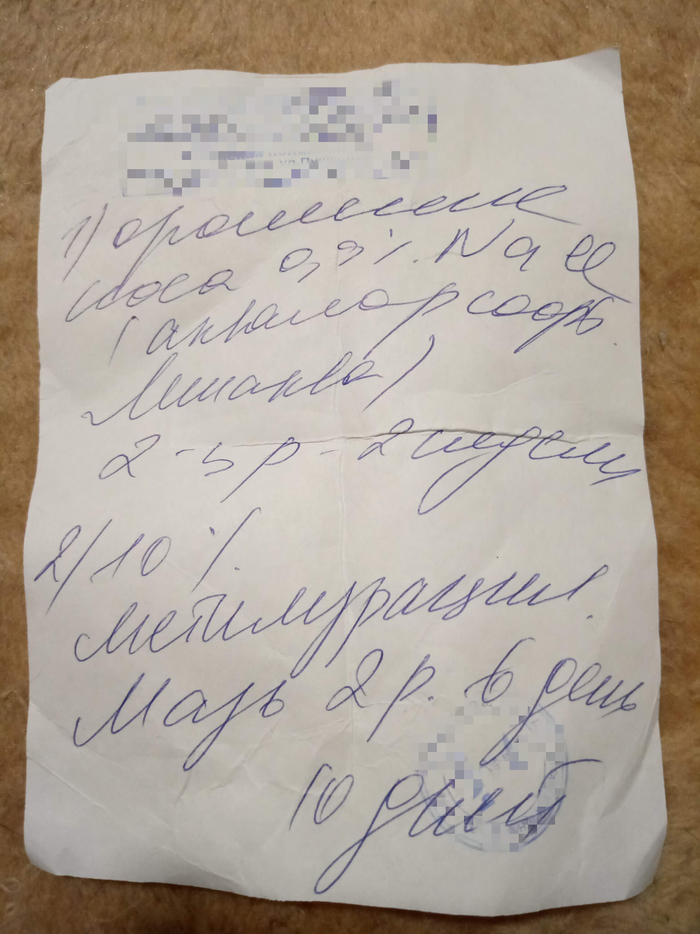 1) орошение
носа 0,9%. NaCl
(аквамор софт.
Линаква)
2-3 р - 2 недели
2) 10%.
метилурацил.
Мазь 2 р. в день
10 дней